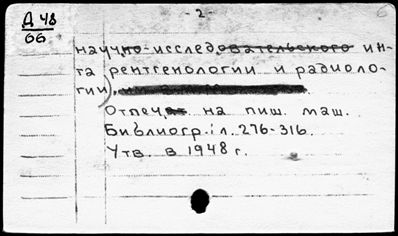 Д 48
66
- 2 -
научно-исследовательского ин-
та рентгенологии и радиоло-
гии),
Отпеч. на пиш. маш.
Библиогр.: л. 276-316.
Утв. в 1948 г.